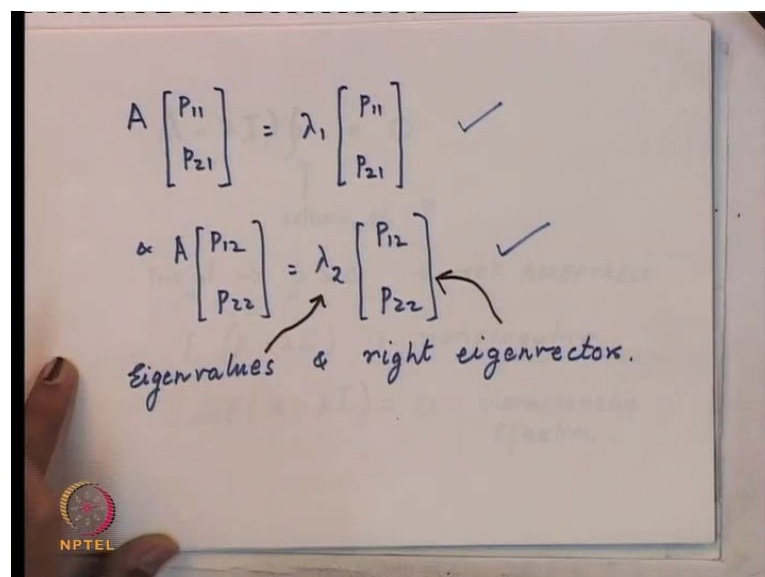 A [P11 P21] = λ1 [P11 P21] ✓
& A [P12 P22] = λ2 [P12 P22] ✓
Eigenvalues & right eigenvectors.
NPTEL